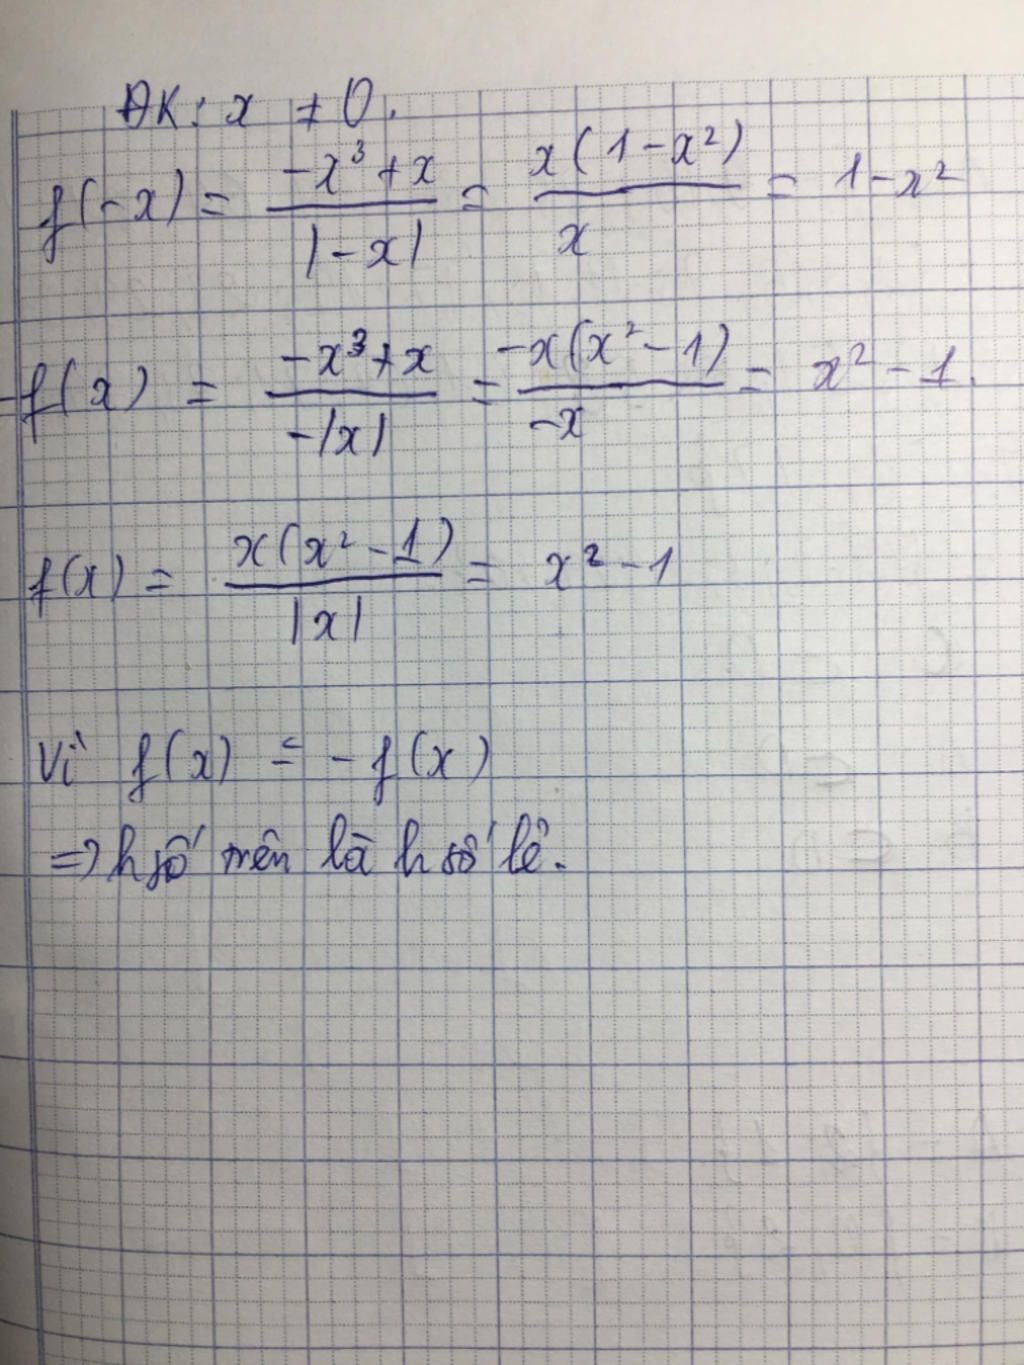 ĐK: x ≠ 0.
f(-x) = \frac{-x³+x}{|-x|} = \frac{x(1-x²)}{x} = 1-x²
-f(x) = \frac{-x³+x}{-|x|} = \frac{-x(x²-1)}{-x} = x²-1.
f(x) = \frac{x(x²-1)}{|x|} = x²-1
Vì f(x) = -f(x)
=> h số trên là h số lẻ.